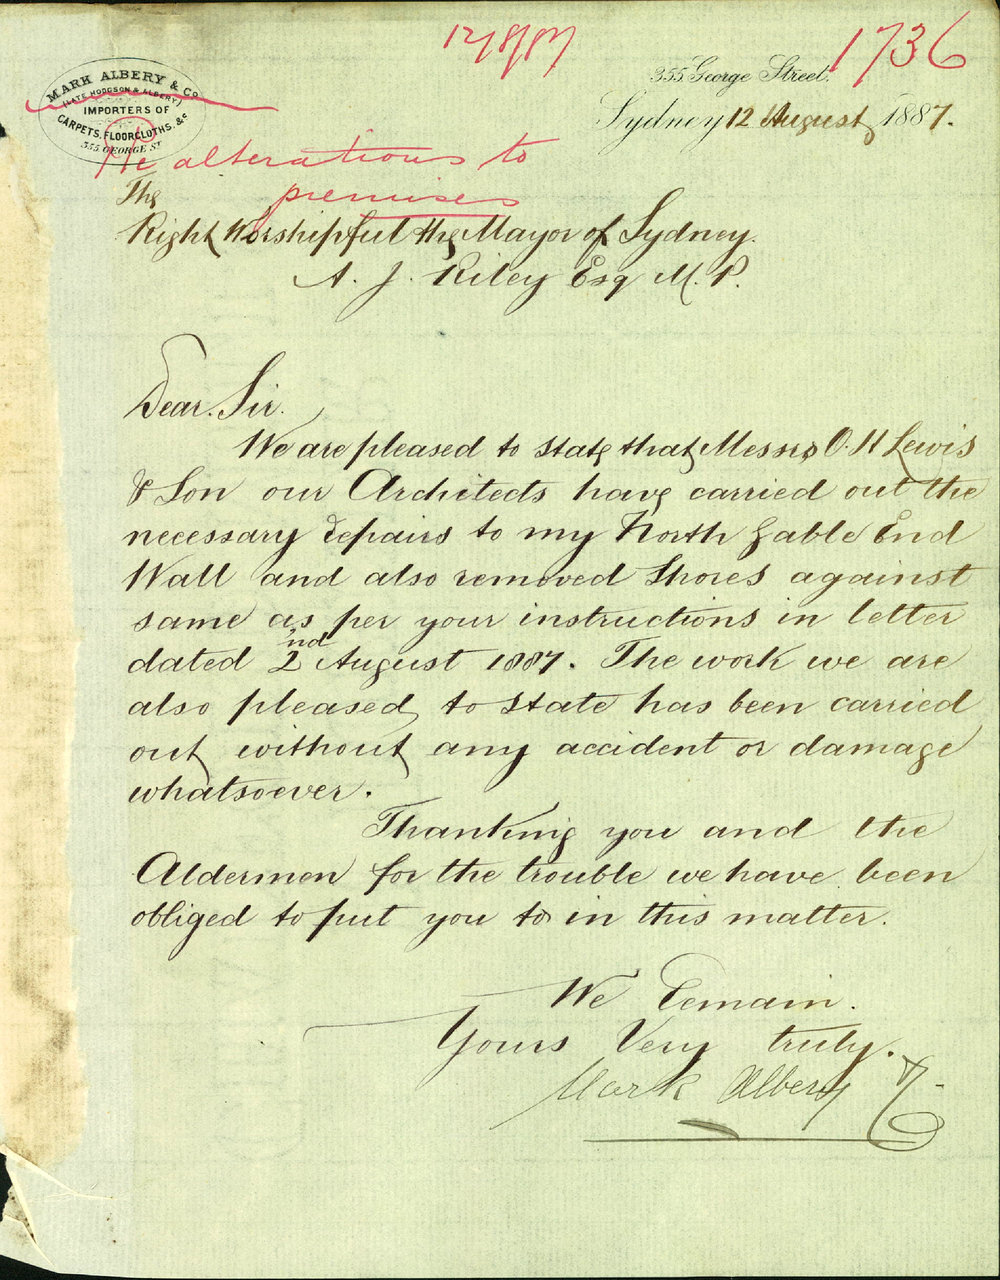 12/8/87
1736
MARK ALBERY & Co
(LATE HODGSON & ALBERY)
IMPORTERS OF
CARPETS, FLOORCLOTHS, &c
355 GEORGE ST
355 George Street,
Sydney 12 August 1887.
Re alterations to
premises
The
Right Worshipful the Mayor of Sydney.
A. J. Riley Esq M. P.
Dear Sir.
We are pleased to state that Messrs O. H Lewis
& Son our Architects have carried out the
necessary repairs to my North Gable End
Wall and also removed Shores against
same as per your instructions in letter
dated 2nd August 1887. The work we are
also pleased to state has been carried
out without any accident or damage
whatsoever.
Thanking you and the
Aldermen for the trouble we have been
obliged to put you to in this matter.
We Remain.
Yours Very truly.
Mark Albery